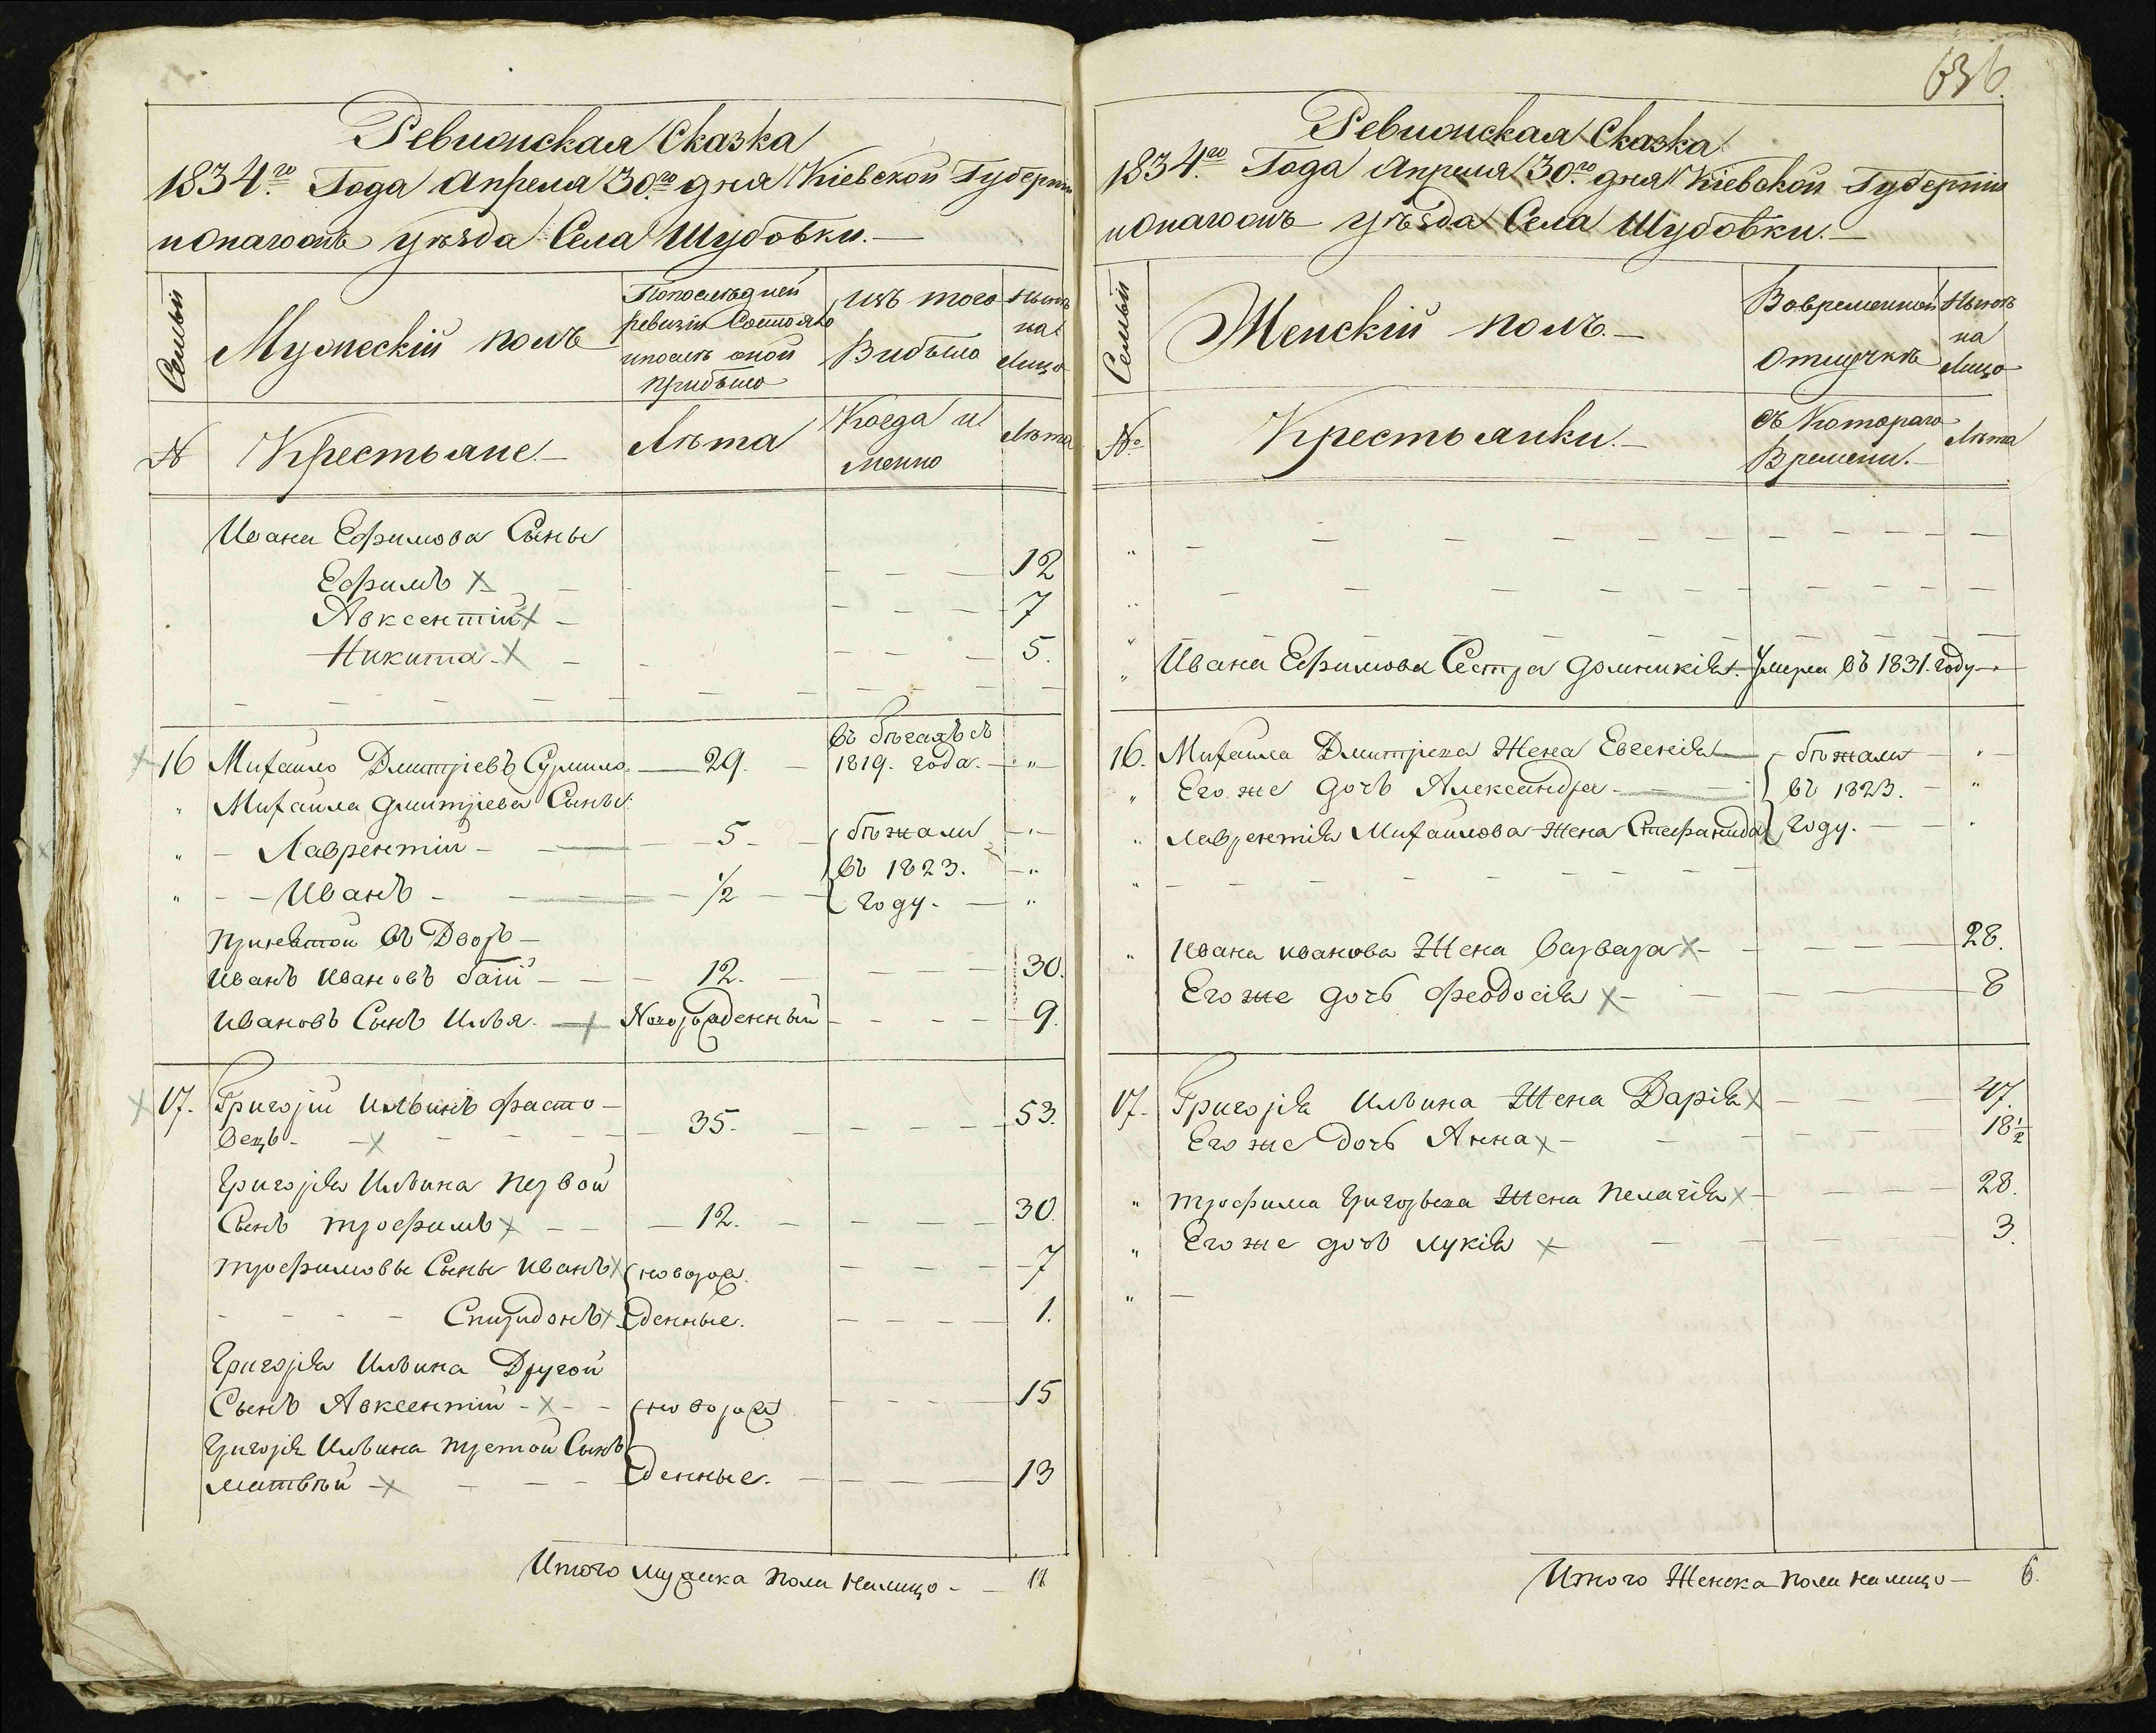 Ревизская Сказка
1834го Года Апреля 30го дня Кіевской Губерніи
уѣзда Села Шубовки.
Семьи
Мужескій полъ
По последней
ревизіи Состояло
и послѣ оной
прибыло
Изъ того
Выбыло
Нынѣ
на
Лицо
№
Крестьяне
Лѣта
Когда и
менно
Лѣта
Ивана Ефимова Сыны
Ефимъ 12
Авксентій 7
Никита 5.
16 Михайло Дмитріевъ 29. въ бѣгахъ съ 1819. года.
Михайла Дмитріева Сыны:
Лаврентій 5 бѣжали
въ 1823.
Иванъ 1/2 году.
Принятой въ Дворъ
Иванъ Ивановъ 12. 30.
Ивановъ Сынъ Илья. Новорожденный 9.
17. Григорій Ильинъ Фасто-
вецъ 35. 53.
Григорія Ильина первой
Сынъ Трофимъ 12. 30.
Трофимовы Сыны Иванъ новорож 7
Спиридонъ денные. 1.
Григорія Ильина Другой
Сынъ Авксентій новорож 15
Григорія Ильина третой Сынъ
Матвѣй денные. 13
Итого мужеска пола налицо 11
636.
Ревизская Сказка
1834го Года Апреля 30го дня Кіевской Губерніи
уѣзда Села Шубовки.
Семьи
Женскій полъ.
Во временной
Отлучкѣ
Нынѣ
на
Лицо
№
Крестьянки.
Съ Котораго
Времени.
Лѣта
Ивана Ефимова Сестра Домникія. Умерла въ 1831. году
16. Михайла Дмитріева Жена Евгенія бѣжали
Его же дочь Александра въ 1823.
Лаврентія Михайлова Жена Стефанида году.
Ивана Иванова Жена Варвара 28.
Его же дочь Феодосія 8
17. Григорія Ильина Жена Дарія 47.
Его же дочь Анна 18 1/2
Трофима Григорьева Жена Пелагія 28.
Его же дочь Лукія 3.
Итого Женска пола налицо 6.